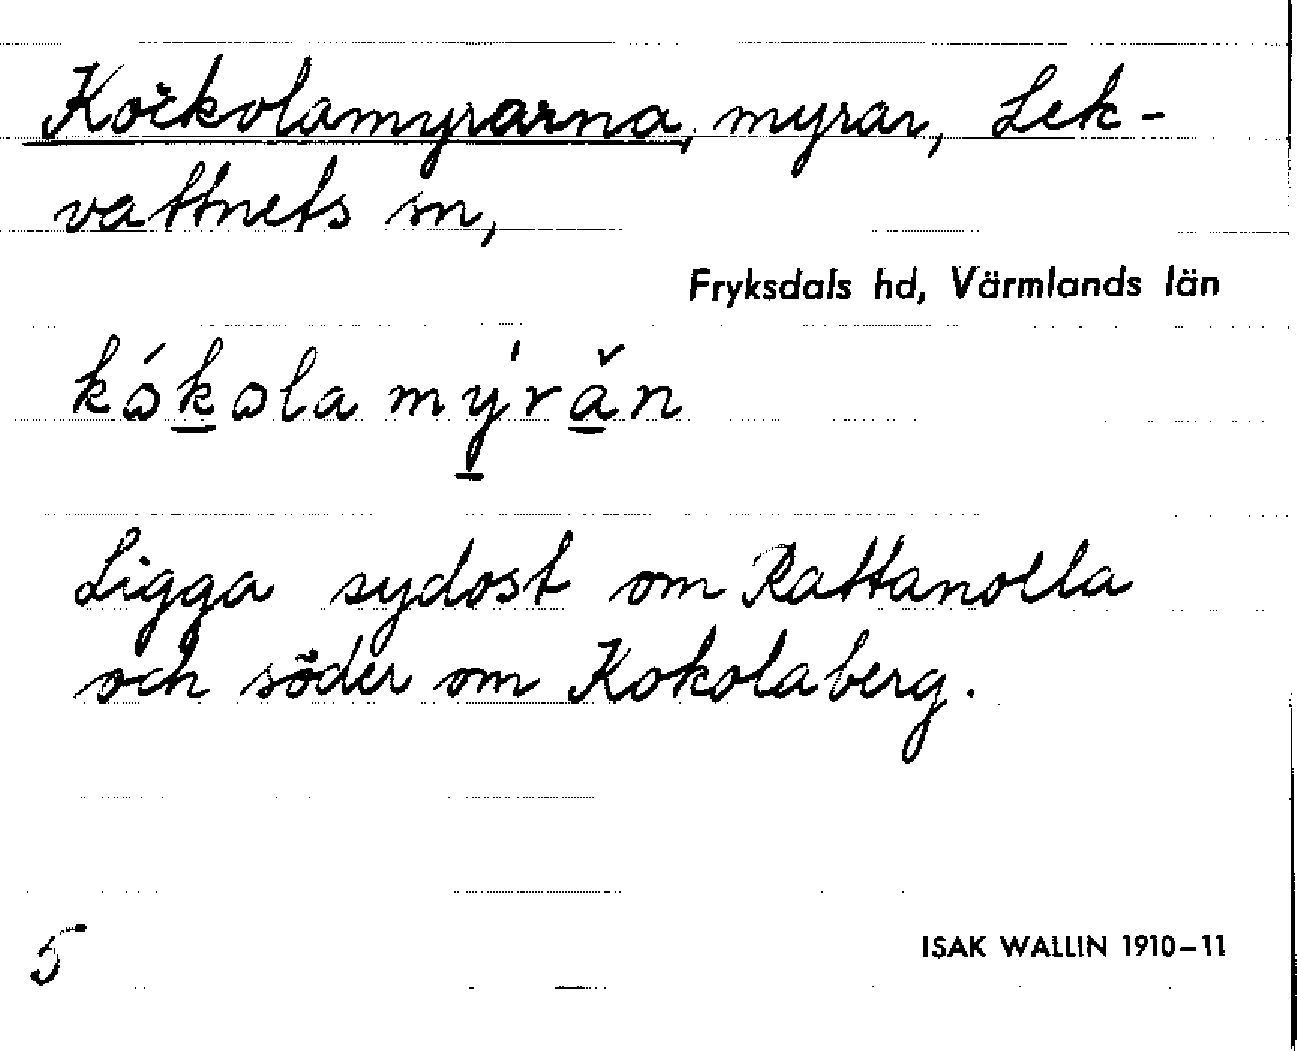 Kockolamyrarna, myrar, Lek-
vattnets sn,
Fryksdals hd, Värmlands län
kókola mý'rǎn
Ligga sydost om Rattanolla
och söder om Kokolaberg.
5
ISAK WALLIN 1910–11